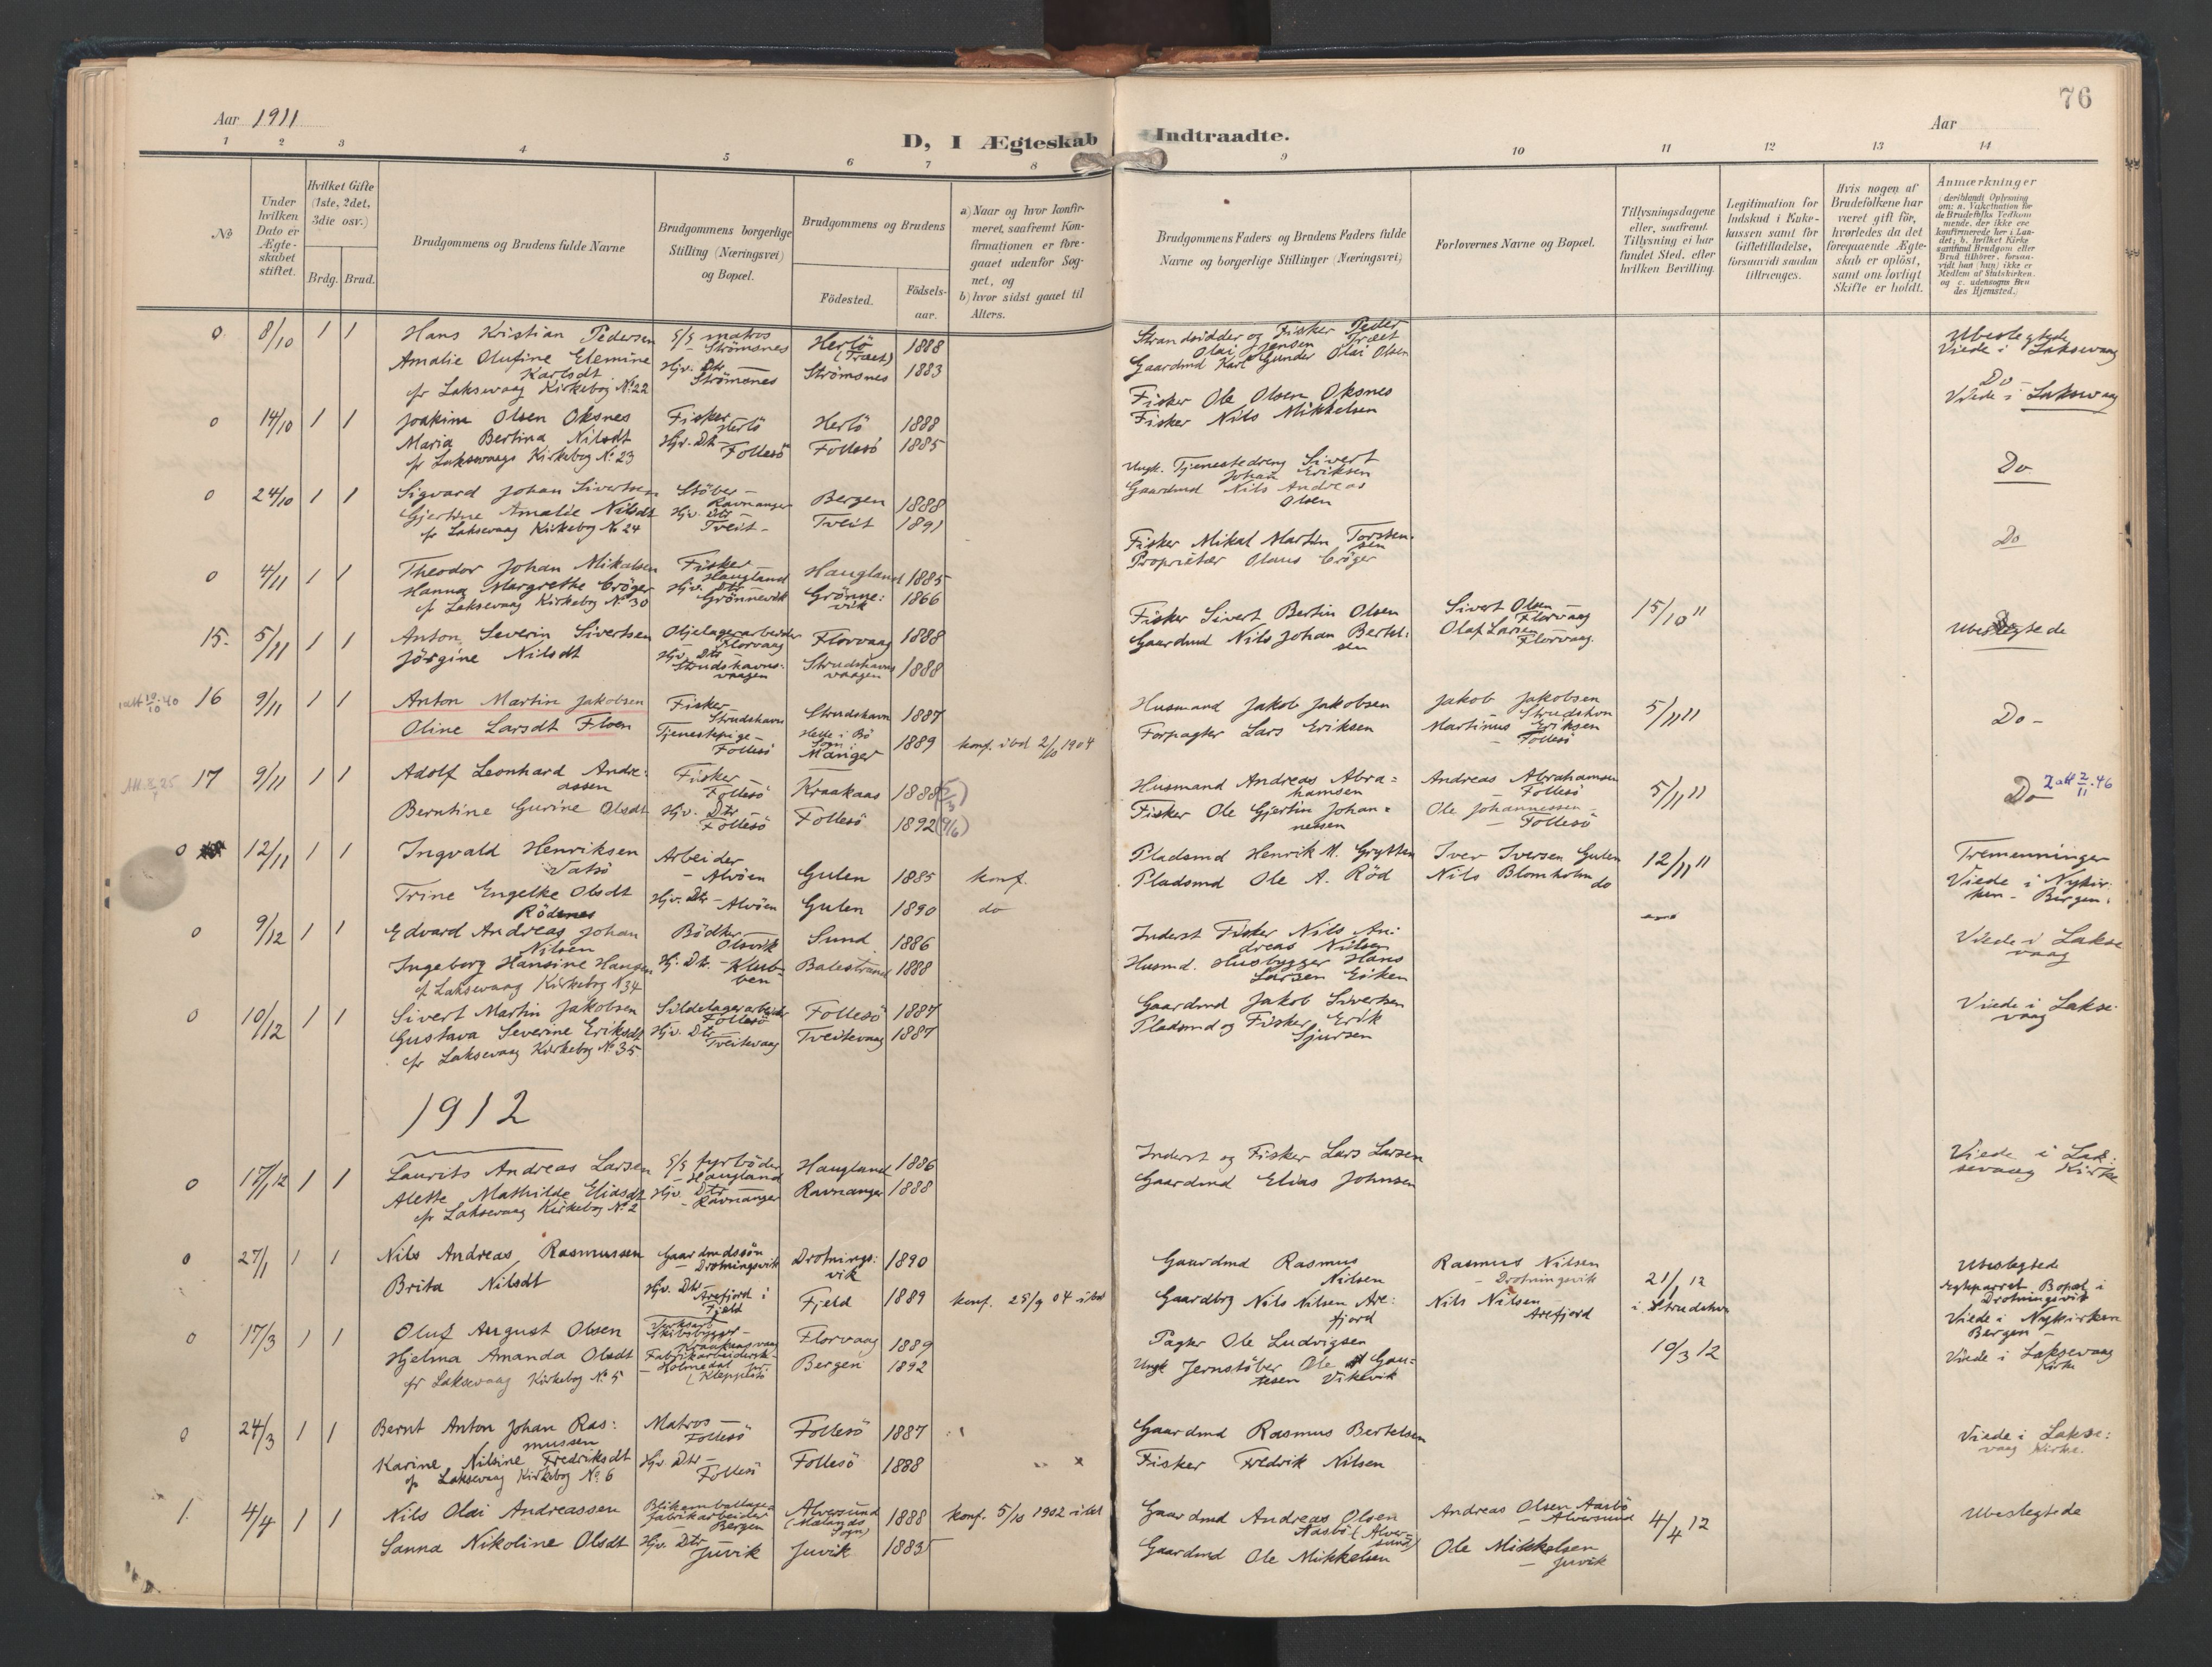 76
Aar 1911
Aar
D, I Ægteskab Indtraadte.
1 2 3 4 5 6 7 8 9 10 11 12 13 14
No
Under hvilken Dato er Ægteskabet stiftet.
Hvilket Gifte (1ste, 2det, 3die osv.)
Brdg. Brud.
Brudgommens og Brudens fulde Navne
Brudgommens borgerlige Stilling (Næringsvei) og Bopæl.
Brudgommens og Brudens
Födested.
Födsels-aar.
a) Naar og hvor konfirmeret, saafremt Konfirmationen er foregaaet udenfor Sognet, og
b) hvor sidst gaaet til Alters.
Brudgommens Faders og Brudens Faders fulde Navne og borgerlige Stillinger (Næringsvei)
Forlovernes Navne og Bopæl.
Tillysningsdagene eller, saafremt Tillysning ei har fundet Sted, efter hvilken Bevilling.
Legitimation for Indskud i Enkekassen samt for Giftetilladelse, forsaavidt saadan tiltrænges.
Hvis nogen af Brudefolkene har været gift för, hvorledes da det foregaaende Ægteskab er oplöst, samt om lovligt Skifte er holdt.
Anmærkninger (deriblandt Oplysning om: a. Vaksination for de Brudefolks Vedkommende, der ikke ere konfirmerede her i Landet; b. hvilket Kirkesamfund Brudgom eller Brud tilhörer, forsaavidt han (hun) ikke er Medlem af Statskirken. og c. udensogns Brudes Hjemsted.)
0. 8/10 1 1 Hans Kristian Pedersen S/S matros - Strömsnes Herlö (Træt) 1888 Strandsidder og Fisker Peder Olai Jensen Træet Ubeslegtede
Amalie Olufine Elemine Karlsdt Hjv. Dtr - Strömsnes Strömsnes 1883 Gaardmd Karl Gunder Olai Olsen Viede i Laksevaag
cfr Laksevaag Kirkebog No 22
0 14/10 1 1 Joakim Olsen Oksnes Fisker Herlö Herlö 1888 Fisker Ole Olsen Oksnes Do -
Maria Bertina Nilsdt Hjv. Dtr - Follesö Follesö 1885 Fisker Nils Mikkelsen Viede i Laksevaag
cfr Laksevaags Kirkebog No 23
0 24/10 1 1 Sigvard Johan Sivertsen Stöber - Ravnanger Bergen 1888 Ungk. Tjenestedreng Sivert Johan Eriksen Do
Gjertine Amalie Nilsdt Hjv. Dtr Tveit - Tveit 1891 Gaardmd Nils Andreas Olsen
cfr Laksevaag Kirkebog No 24
0 4/11 1 1 Theodor Johan Mikalsen Fisker - Haugland Haugland 1885 Fisker Mikal Martin Torstensen Do
Hanna Margrethe Cröger Hjv. Dtr Grönnevik Grönnevik 1866 Proprietær Olaus Cröger
cfr Laksevaag Kirkebog No 30
15. 5/11 1 1 Anton Severin Sivertsen Oljelagerarbeider Florvaag Florvaag 1888 Fisker Sivert Bertin Olsen Sivert Olsen - Florvaag 15/10 11 Ubeslegtede
Jörgine Nilsdt Hjv. Dtr Strudshavnsvaagen Strudshavnsvaagen 1888 Gaardmd Nils Johan Bertelsen Olaf Larsen Florvaag.
16 9/11 1 1 Anton Martin Jakobsen Fisker - Strudshavn Strudshavn 1887 Husmand Jakob Jakobsen Jakob Jakobsen Strudshvn 5/11 11 Do -
Oline Larsdt Floen Tjenestepige - Follesö Helle i Bö Sogn i Manger 1889 konf. ibd 2/10 1904 Forpagter Lars Eriksen Martinus Eriksen - Follesö
17 9/11 1 1 Adolf Leonhard Andreassen Fisker - Follesö Kraakaas 1888 Husmand Andreas Abrahamsen Andreas Abrahamsen - Follesö 5/11 11 Do 2/11.46
Berntine Gurine Olsdt Hjv. Dtr - Follesö Follesö 1892 (9/6) Fisker Ole Gjertin Johannessen Ole Johannessen - Follesö
0 12/11 1 1 Ingvald Henriksen Arbeider - Alvöen Gulen 1885 konf. Pladsmd Henrik M. Grytten Iver Iversen Gulen 12/11 11 Tremenninger
Trine Engelke Olsdt Rödsnes Hjv. Dtr - Alvöen Gulen 1890 do Pladsmd Ole A. Röd Nils Blomholm do Viede i Nykirken - Bergen.
0 9/12 1 1 Edvard Andreas Johan Nilsen Bödker - Olsvik Sund 1886 Inderst Fisker Nils Andreas Nilsen Viede i Laksevaag
Ingeborg Hansine Hansen Hj. Dtr. - Klubben Balestrand 1888 Husmd. Husbygger Hans Larsen Eiken
cf Laksevaag Kirkebog N 34
0 10/12 1 1 Sivert Martin Jakobsen Sildelagerarbeider Follesö Follesö 1887 Gaardmd Jakob Sivertsen Viede i Laksevaag
Gustava Severine Eriksdt Hjv. Dtr Tveitevaag Tveitevaag 1887 Pladsmd og Fisker Erik Sjursen
cfr Laksevaag Kirkebog No 35
1912
0 17/1 12 1 1 Laurits Andreas Larsen S/S fyrböder - Haugland Haugland 1886 Inderst og Fisker Lars Larsen Viede i Laksevaag Kirke
Alette Mathilde Eliasdt Hjv. Dtr - Ravnanger Ravnanger 1888 Gaardmd Elias Johnsen
cfr Laksevaag Kirkebog No 2
0 27/1 1 1 Nils Andreas Rasmussen Gaardmdssön - Drotningsvik Drotningsvik 1890 Gaardmd Rasmus Nilsen Rasmus Nilsen - Drotningsvik 21/1 12 i Strudshvn Ubeslegtede
Brita Nilsdt Hjv. Dtr - Arefjord i Fjeld Fjeld 1889 konf. 25/9 04 ibd Gaardbrg Nils Nilsen Arefjord Nils Nilsen Arefjord Egteparret Bopæl i Drotningsvik Viede i Nykirken Bergen -
0 17/3 1 1 Oluf August Olsen Skibsbygger - Kraakaasvaag Florvaag 1889 Pagter Ole Ludvigsen 10/3 12 Viede i Laksevaag Kirke
Hjelma Amanda Olsdt Fabrikarbeidersk - Holmedal pr. (Kleppestö Bergen 1892 Ungk Jernstöber Ole Gautesen Vikevik
cfr Laksevaag Kirkebog No 5
0 24/3 1 1 Bernt Anton Johan Rasmussen Matros - Follesö Follesö 1887 Gaardmd Rasmus Bertelsen Viede i Laksevaag Kirke.
Karine Nilsine Fredriksdt Hjv. Dtr - Follesö Follesö 1888 Fisker Fredrik Nilsen
cfr Laksevaag Kirkebog No 6
1. 4/4 1 1 Nils Olai Andreassen Blikemballagefabrikarbeider - Bergen Alversund (Mælands Sogn) 1888 konf. 5/10 1902 ibd Gaardmd Andreas Olsen (Alversund) Andreas Olsen Aasbö - Alversund 4/4 12 Ubeslegtede
Sanna Nikoline Olsdt Hjv. Dtr Juvik Juvik 1885 Gaardmd Ole Mikkelsen Ole Mikkelsen - Juvik